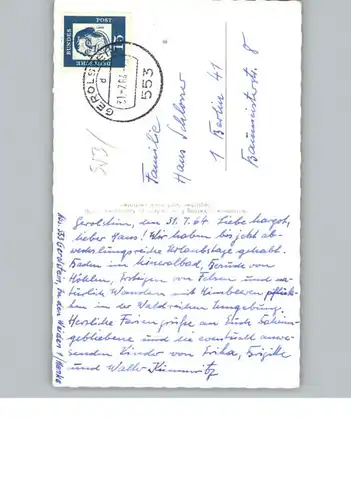 DEUTSCHE
BUNDES
POST
15
GEROLSTEIN
553
d
Familie
Hans Schlomer
1 Berlin 41
8
553/
Gerolstein, den 31.7.64. Liebe Margot,
lieber Hans! Wir haben bis jetzt ab-
wechslungsreiche Urlaubstage gehabt.
Baden im Mineralbad, Besuch von
Höhlen, Besteigen von Felsen und na-
türlich Wandern mit Himbeeren pflük-
ken in der Waldreichen Umgebung.
Herzliche Feriengrüße an Euch Daheim-
gebliebene und die eventuell anwe-
senden Kinder von Erika, Brigitte
und Walter
553 Gerolstein,